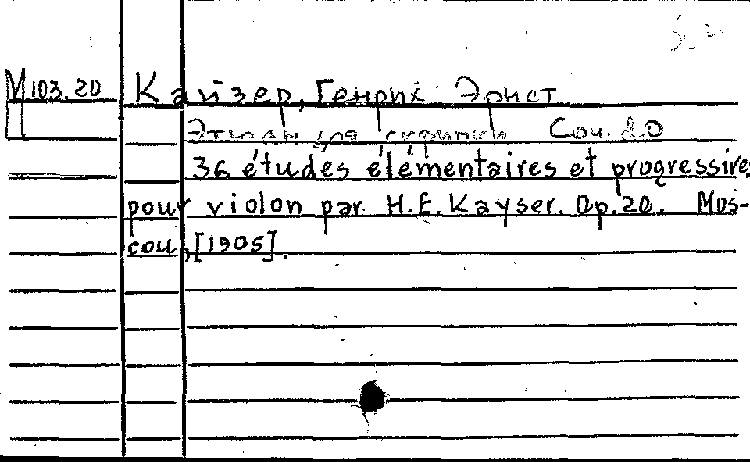 М103.20 Кайзер, Генрих Эрнст
Этюды для скрипки Соч. 20
36 études élémentaires et progressives
pour violon par H.E. Kayser. Op. 20. Mos-
cou, [1905].